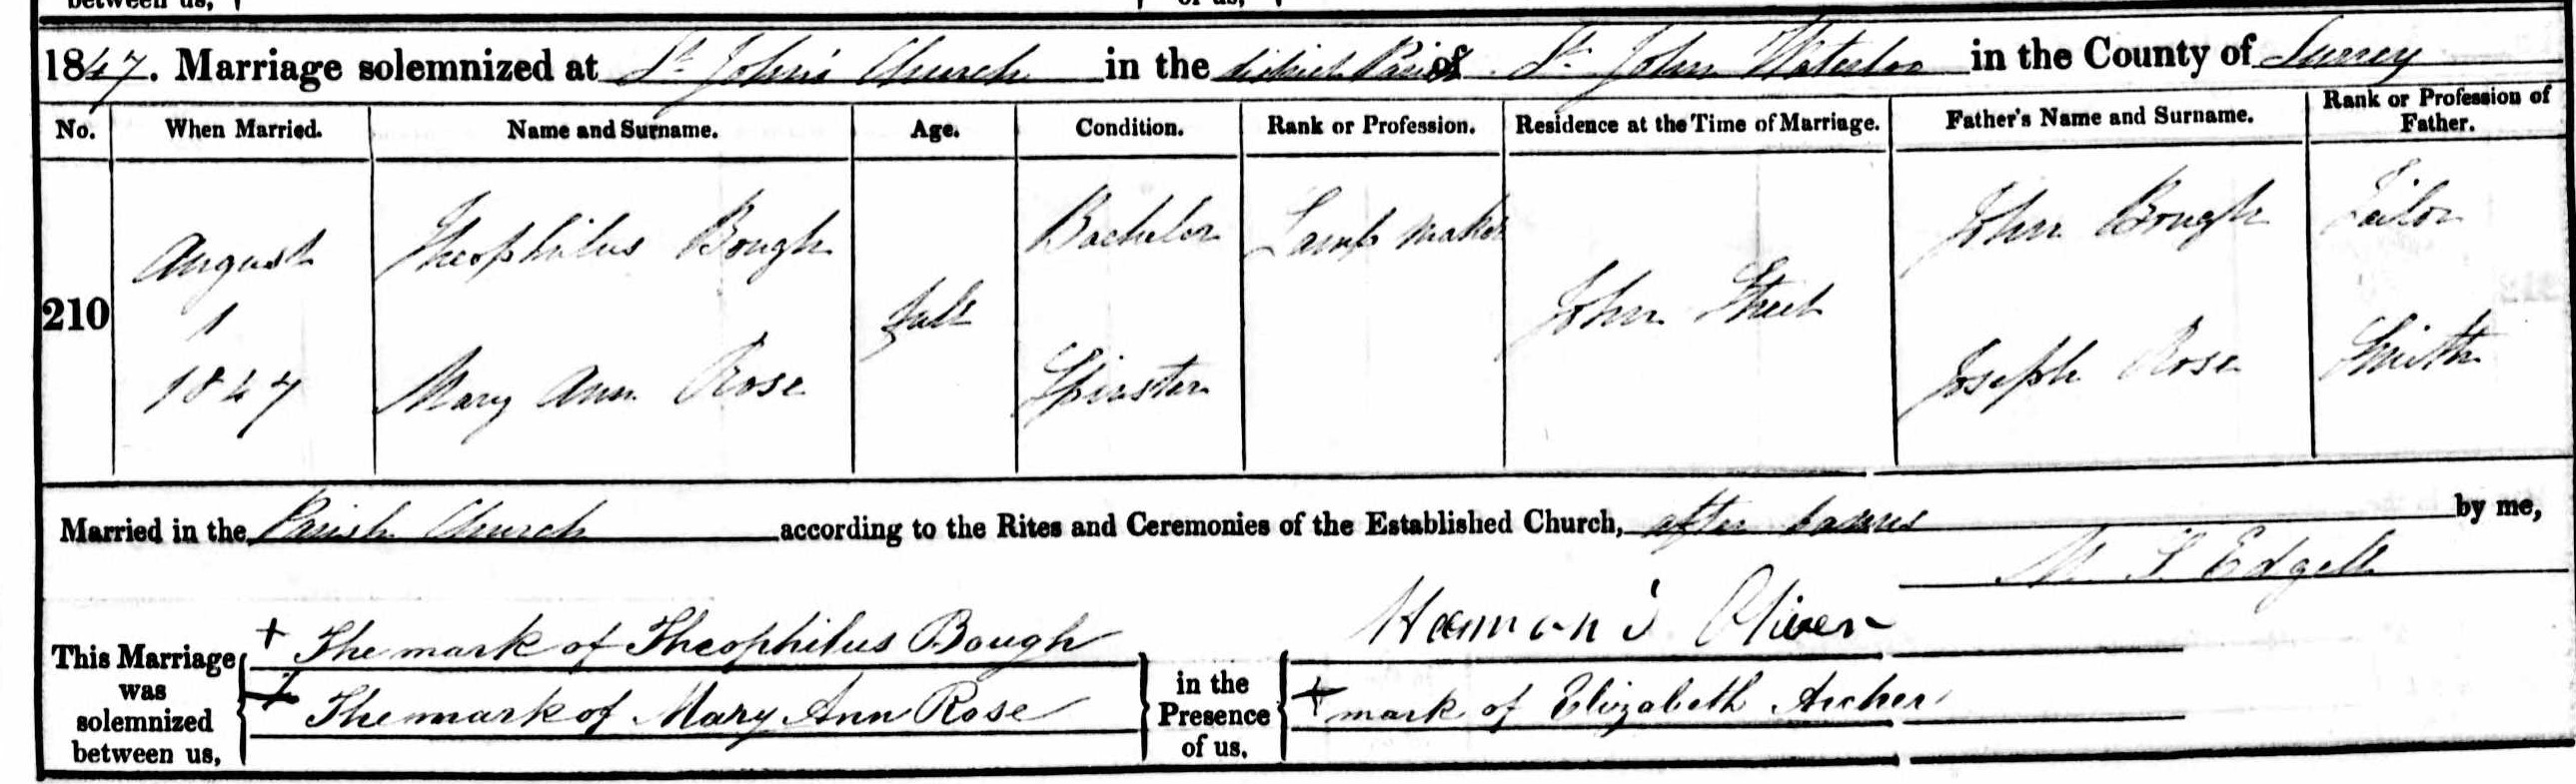 between us,
of us,
1847. Marriage solemnized at St John's Church in the district Parish of St John Waterloo in the County of Surrey
No. When Married. Name and Surname. Age. Condition. Rank or Profession. Residence at the Time of Marriage. Father's Name and Surname. Rank or Profession of Father.
210
August 1 1847
Theophilus Bough full Bachelor Lamp maker John Street John Bough Tailor
Mary Ann Rose Spinster Joseph Rose Smith
Married in the Parish Church according to the Rites and Ceremonies of the Established Church, after banns by me,
Edgell
This Marriage was solemnized between us,
+ The mark of Theophilus Bough
+ The mark of Mary Ann Rose
in the Presence of us,
Oliver
+ mark of Elizabeth Archer